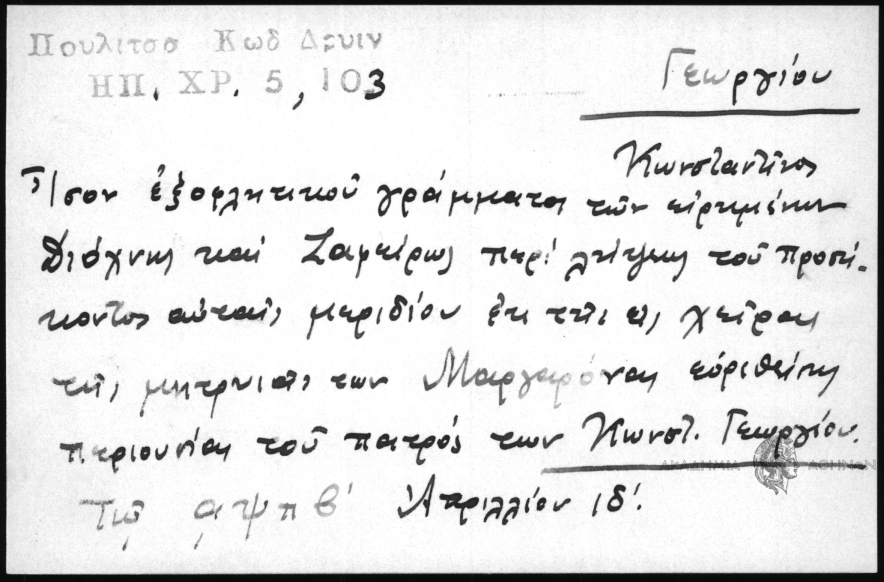 Πουλιτσα Κωδ Δρυιν
ΗΠ. ΧΡ. 5, 103
Γεωργίου
Κωνσταντῖνος
Ἴσον ἐξοφλητικοῦ γράμματος τῶν εἰρημένων
Διόχνης καὶ Ζαφείρως περὶ λήψης τοῦ προσή-
κοντος αὐταῖς μεριδίου ἐκ τῆς εἰς χεῖρας
τῆς μητρυιᾶς των Μαργαρόνας εὑριθείσης
περιουσίας τοῦ πατρός των Κωνστ. Γεωργίου.
ΑΚΑΔΗΜΙΑ ΑΘΗΝΩΝ
Τῷ αψπβ' Ἀπριλλίου ιδ'.